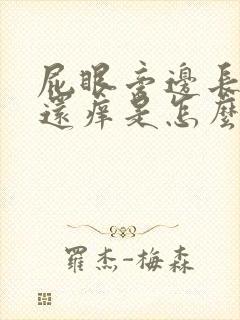 屁眼旁邊長
還癢是怎麼
羅杰-梅森